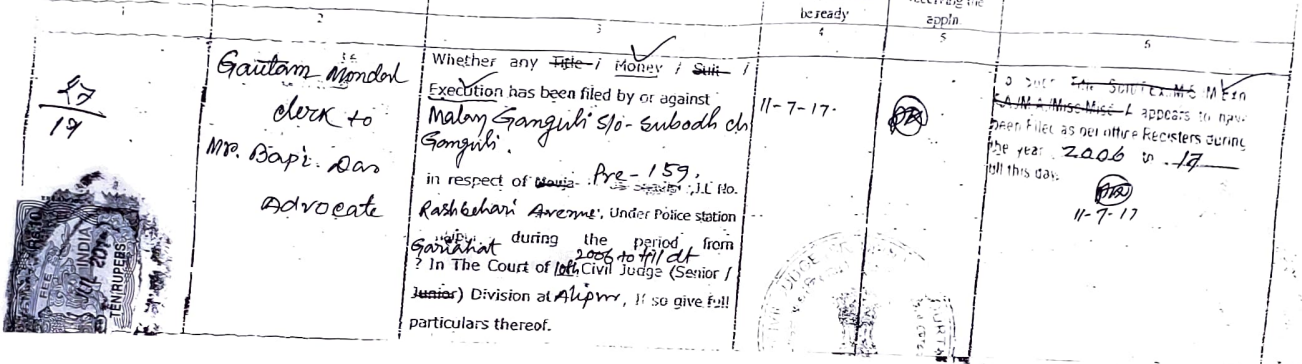 be ready
receiving the
appln.
1
2
3
4
5
6
17
Gautam Mondal
clerk to
Mr. Bapi Das
Advocate
Whether any Title / Money / Suit /
Execution has been filed by or against
Malay Ganguli S/o- Subodh ch
Ganguli.
in respect of Mouja Pre - 159, J.L No.
Rashbehari Avenue, Under Police station
Gariahat during the period from
2006 to till dt
? In The Court of 10th Civil Judge (Senior /
Junior) Division at Alipur, If so give full
particulars thereof.
11-7-17.
appears to have
been Filed as per office Registers during
the year 2006 to 17
till this day.
11-7-17
INDIA
TEN RUPEES
FEE